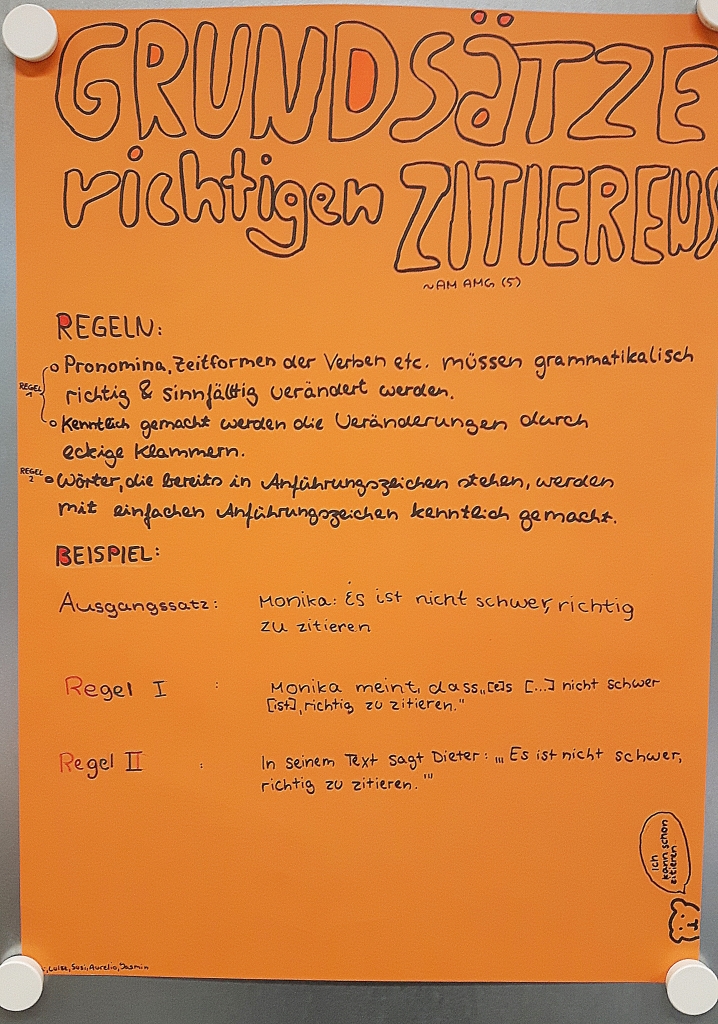 GRUNDSÄTZE
richtigen ZITIERENS
~AM AMG (5)
REGELN:
REGEL 1
o Pronomina, Zeitformen der Verben etc. müssen grammatikalisch
richtig & sinnfällig verändert werden.
o Kenntlich gemacht werden die Veränderungen durch
eckige Klammern.
REGEL 2
o Wörter, die bereits in Anführungszeichen stehen, werden
mit einfachen Anführungszeichen kenntlich gemacht.
BEISPIEL:
Ausgangssatz: Monika: Es ist nicht schwer, richtig
zu zitieren
Regel I : Monika meint, dass „[e]s [...] nicht schwer
[ist], richtig zu zitieren."
Regel II : In seinem Text sagt Dieter: „‚Es ist nicht schwer,
richtig zu zitieren.'"
Ich
kann schon
zitieren
, Luise, Susi, Aurelio, Jasmin